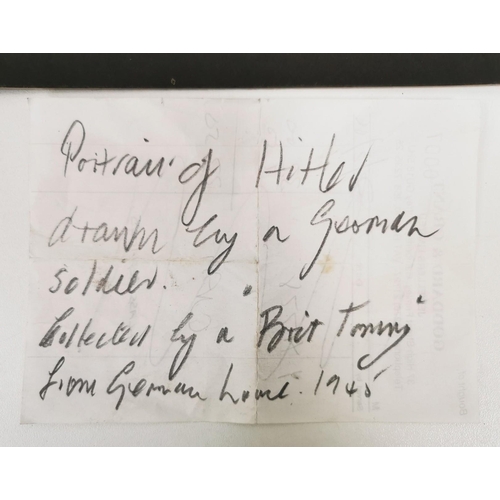 Portrait of Hitler
drawn by a German
soldier.
Collected by a "Brit Tommy"
from German house. 1945